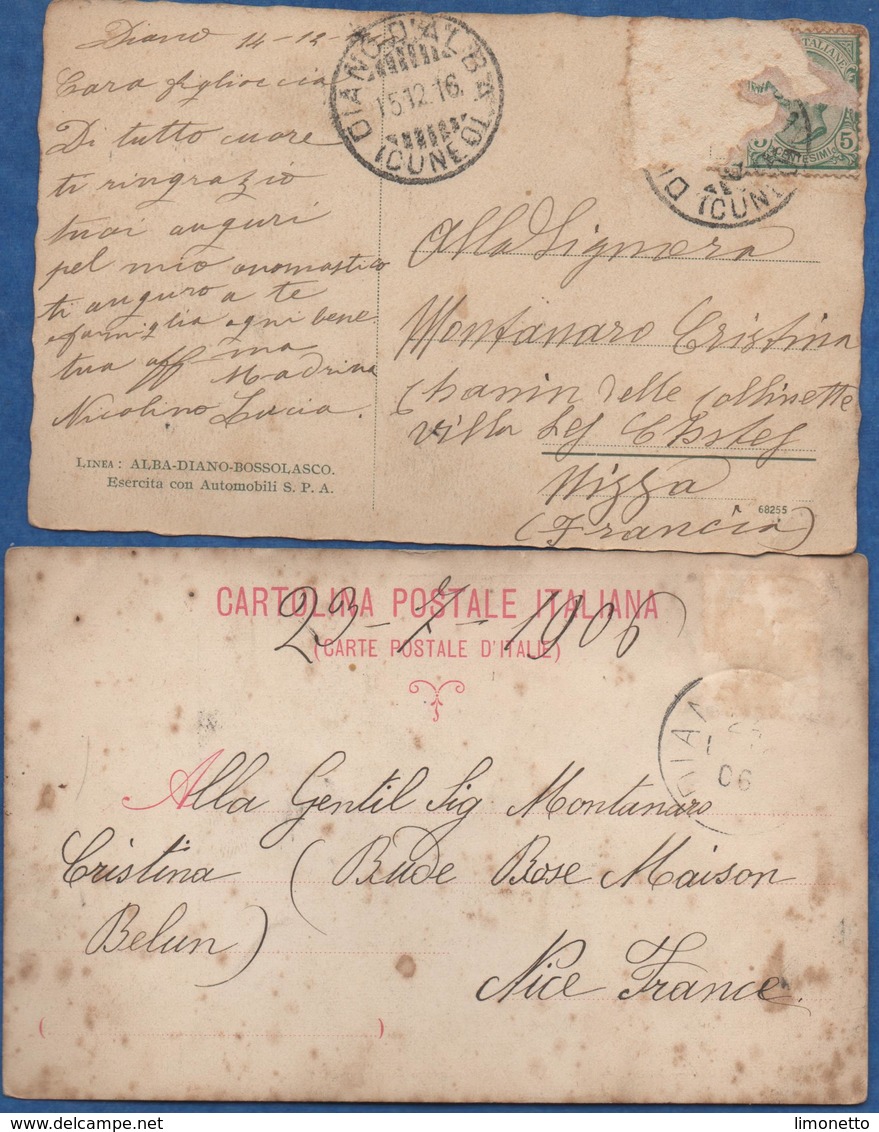 Diano 14-12-
Cara figlioccia
Di tutto cuore
ti ringrazio
tuoi auguri
pel mio onomastico
ti auguro a te
e famiglia ogni bene
tua aff ma
Madrina
Nicolino Lucia.
LINEA: ALBA-DIANO-BOSSOLASCO.
Esercita con Automobili S. P. A.
DIANO D'ALBA
15.12.16.
(CUNEO)
ITALIANE
5
CENTESIMI
(CUN
Alla Signora
Montanaro Cristina
Chanin delle Collinette
villa Les
Nizza
(Francia)
68255
CARTOLINA POSTALE ITALIANA
(CARTE POSTALE D'ITALIE)
23-7-1906
06
Alla Gentil Sig Montanaro
Cristina (Rude Rose Maison
Belun)
Nice France.
limonetto